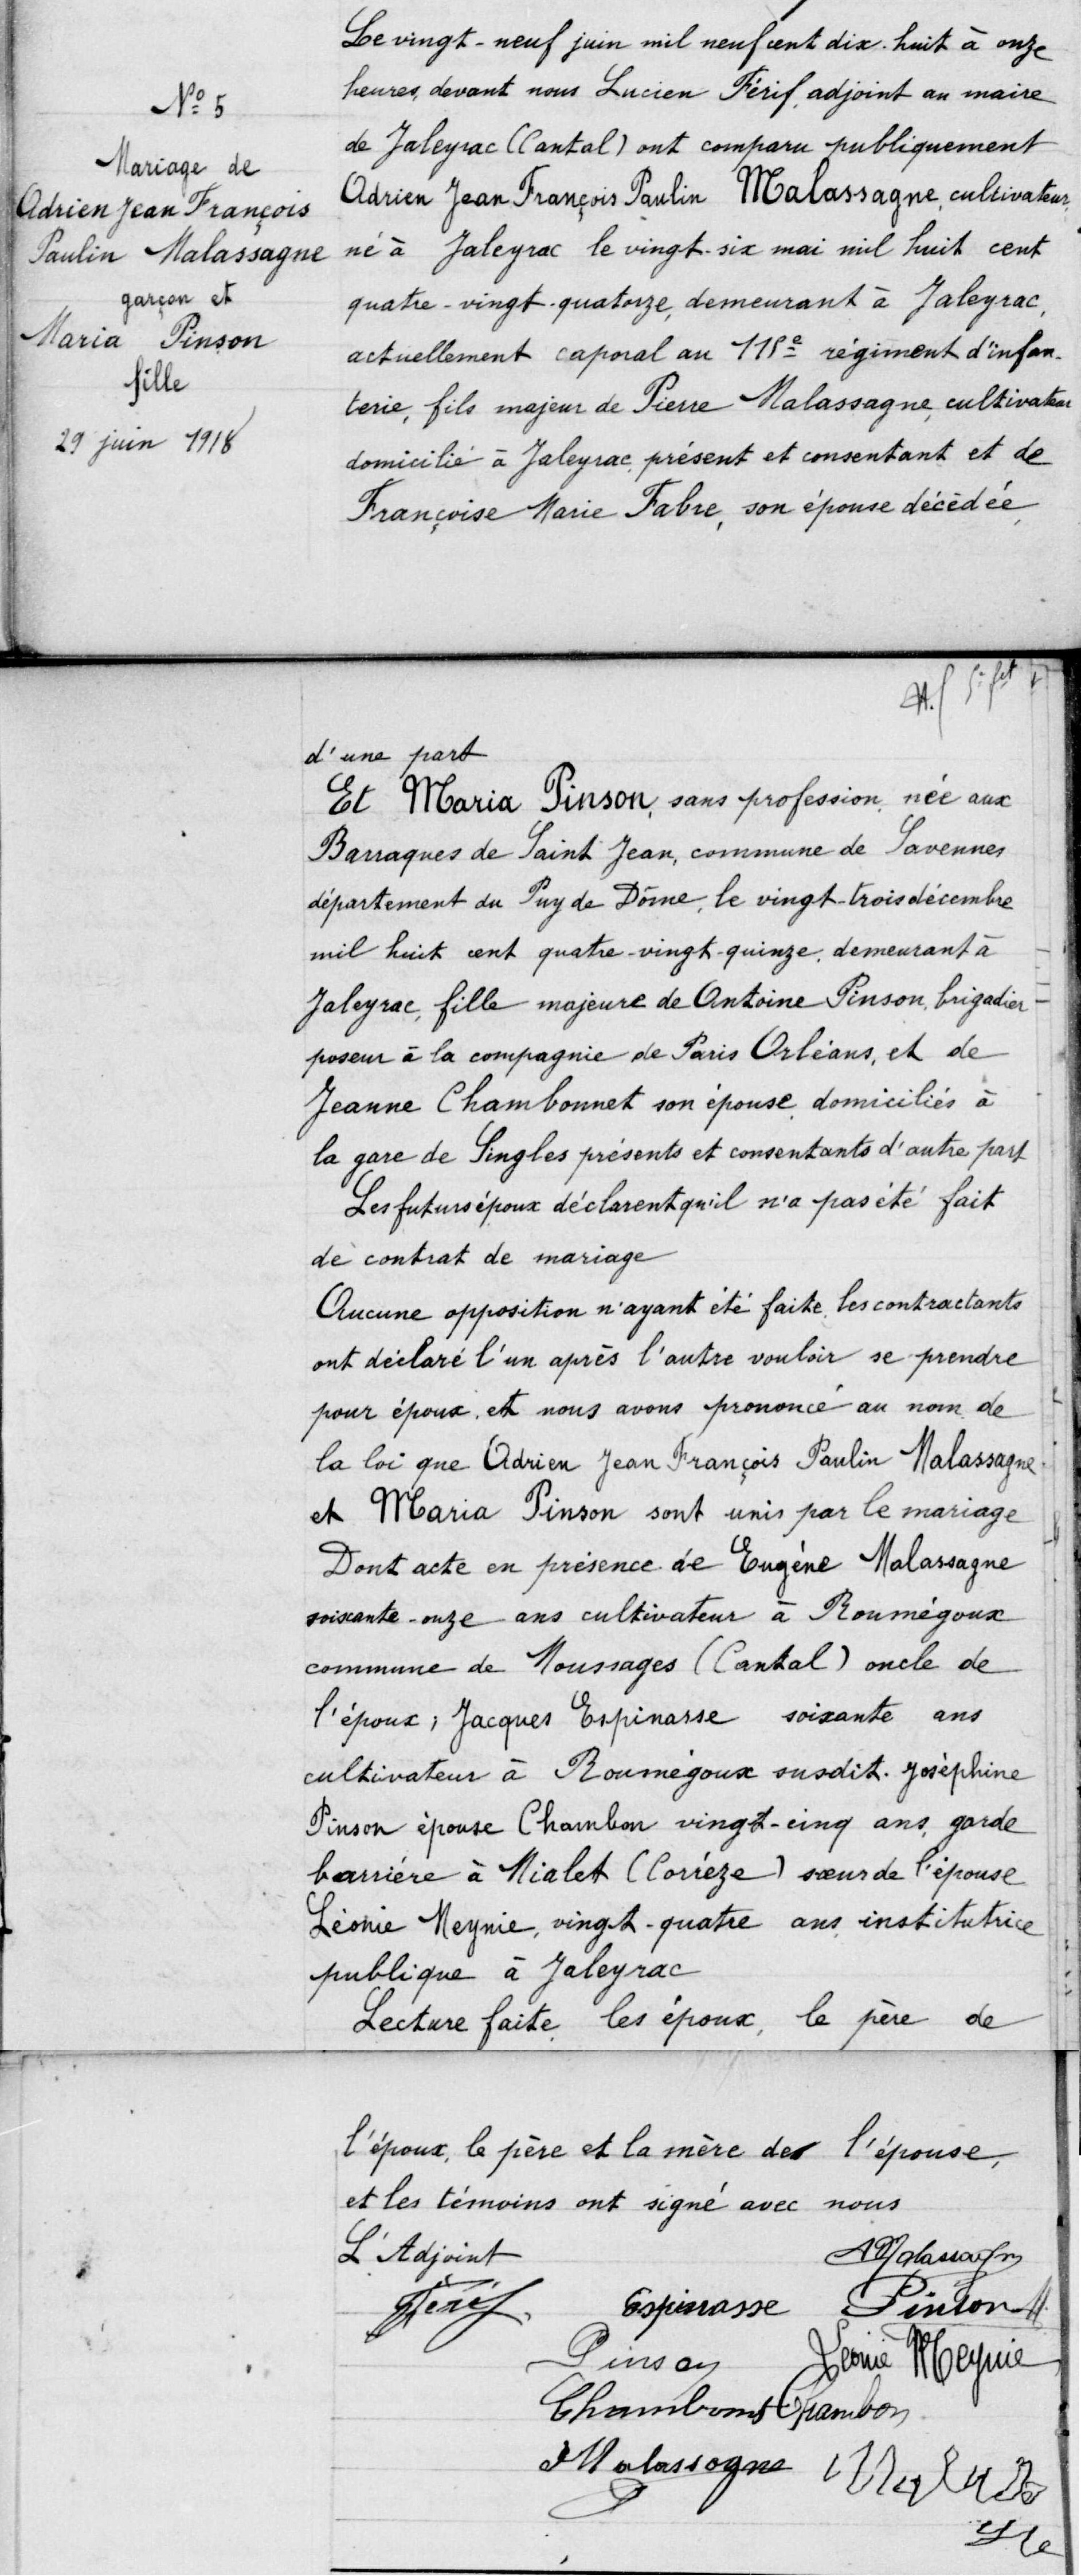 Le vingt-neuf juin mil neuf cent dix-huit à onze
heures, devant nous Lucien Férif, adjoint au maire
de Jaleyrac (Cantal) ont comparu publiquement
Adrien Jean François Paulin Malassagne, cultivateur,
né à Jaleyrac le vingt-six mai mil huit cent
quatre-vingt-quatorze, demeurant à Jaleyrac,
actuellement caporal au régiment d'infan-
terie, fils majeur de Pierre Malassagne, cultivateur
domicilié à Jaleyrac, présent et consentant et de
Françoise Marie Fabre, son épouse décédée,
No 5
Mariage de
Adrien Jean François
Paulin Malassagne
garçon et
Maria Pinson
fille
29 juin 1918
d'une part
Et Maria Pinson, sans profession, née aux
Barraques de Saint Jean, commune de Savennes
département du Puy de Dôme, le vingt-trois décembre
mil huit cent quatre-vingt-quinze, demeurant à
Jaleyrac, fille majeure de Antoine Pinson, brigadier
poseur à la compagnie de Paris Orléans, et de
Jeanne Chambonnet son épouse, domiciliés à
la gare de Singles présents et consentants d'autre part
Les futurs époux déclarent qu'il n'a pas été fait
de contrat de mariage
Aucune opposition n'ayant été faite, les contractants
ont déclaré l'un après l'autre vouloir se prendre
pour époux, et nous avons prononcé au nom de
la loi que Adrien Jean François Paulin Malassagne
et Maria Pinson sont unis par le mariage
Dont acte en présence de Eugène Malassagne
soixante-onze ans cultivateur à Roumégoux
commune de Moussages (Cantal) oncle de
l'époux; Jacques Espinasse soixante ans
cultivateur à Roumégoux susdit. Joséphine
Pinson épouse Chambon vingt-cinq ans, garde
barrière à Mialet (Corrèze) sœur de l'épouse
Léonie Meynie, vingt-quatre ans, institutrice
publique à Jaleyrac
Lecture faite, les époux, le père de
l'époux, le père et la mère de l'épouse,
et les témoins ont signé avec nous
L'Adjoint
Férif Espinasse Pinson M
Pinson Léonie Meynie
Chambon
Malassagne